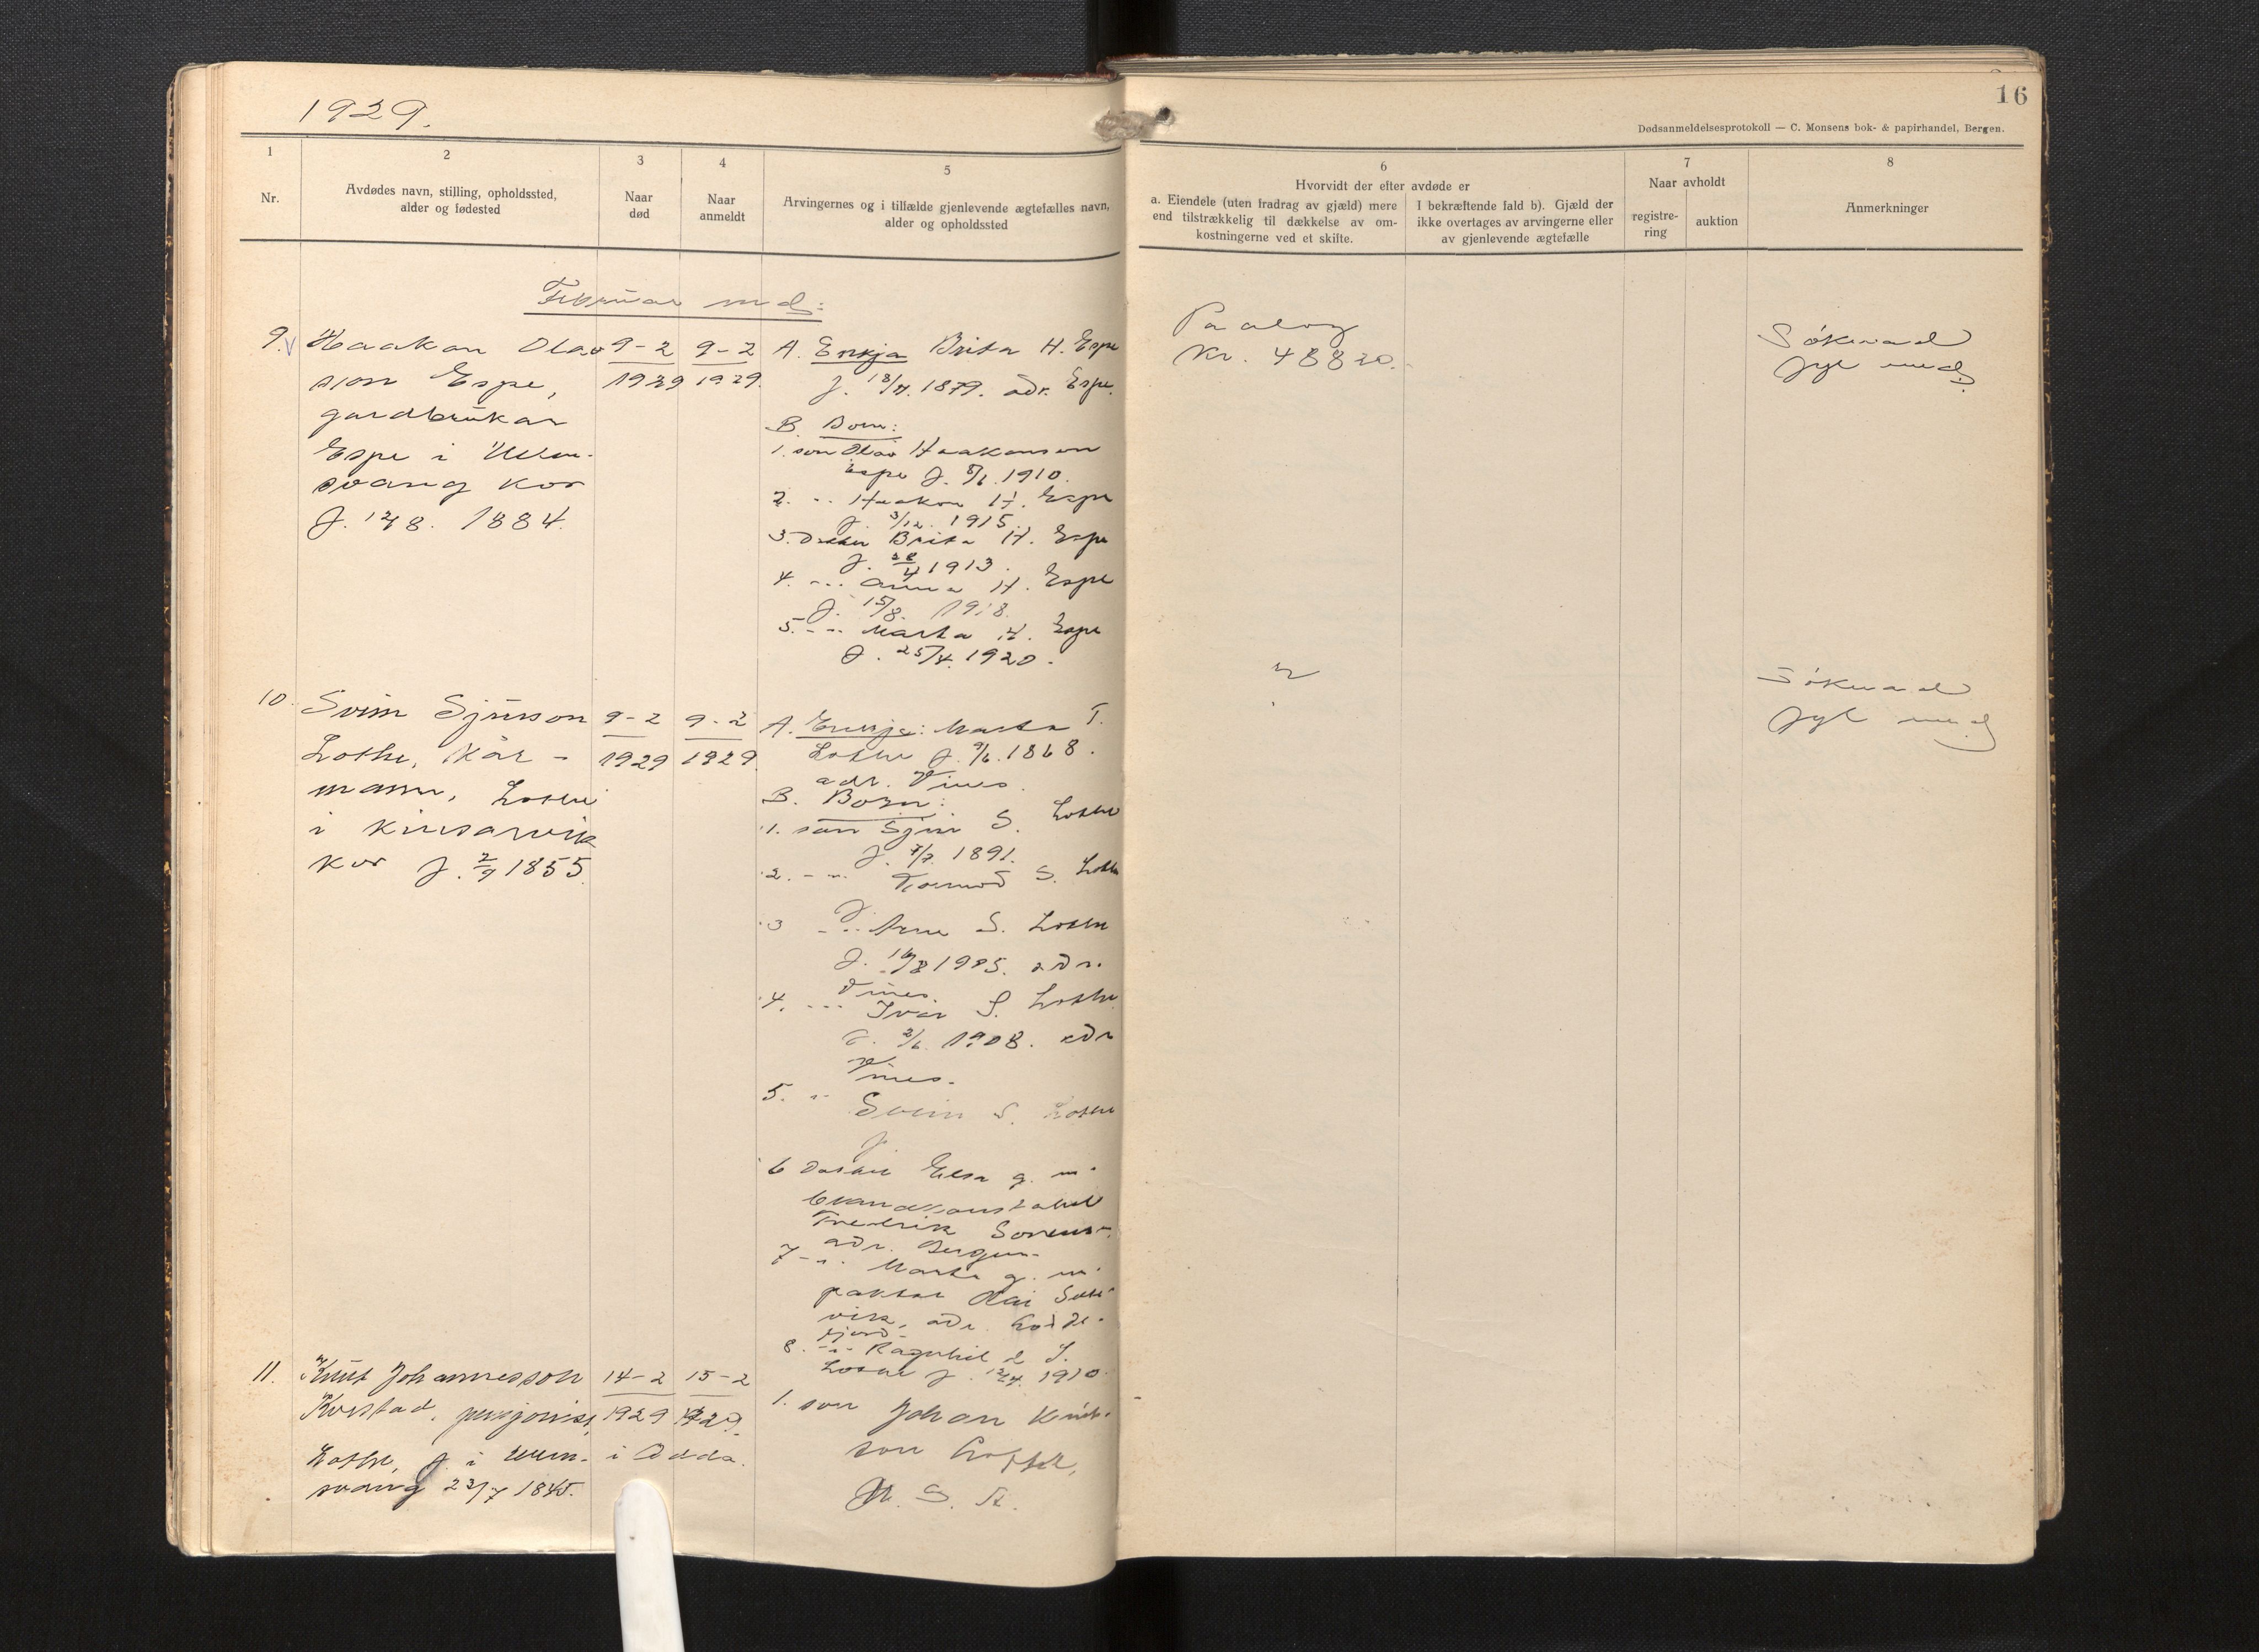 1929.
16
Dødsanmeldelsesprotokoll — C. Monsens bok- & papirhandel, Bergen.
1
Nr.
2
Avdødes navn, stilling, opholdssted,
alder og fødested
3
Naar
død
4
Naar
anmeldt
5
Arvingernes og i tilfælde gjenlevende ægtefælles navn,
alder og opholdssted
6
Hvorvidt der efter avdøde er
a. Eiendele (uten fradrag av gjæld) mere
end tilstrækkelig til dækkelse av om-
kostningerne ved et skifte.
I bekræftende fald b). Gjæld der
ikke overtages av arvingerne eller
av gjenlevende ægtefælle
7
Naar avholdt
registre-
ring
auktion
8
Anmerkninger
Februar md:
9.
Haakon Olav
son Espe,
gardbrukar
Espe i Ullen-
svang kor
f. 1884.
9-2
1929
9-2
1929.
A. Enkja Brita H. Espe
f. 1879. adr. Espe.
B. Born:
1. son Olav Haakonson
Espe f. 1910.
2. -"- Haakon H. Espe
f. 3/12. 1915.
3. Dotter Brita H. Espe
f. 1913.
4. -"- Anna H. Espe
f. 15/8. 1918.
5. -"- Marta H. Espe
f. 25/4. 1920.
Kr. 48820.
10.
Svein Sjurson
Lothe, kår-
mann, Lothe
i Kinsarvik
kor f. 2/9 1855.
9-2
1929
9-2
1929.
A. Enkja: Marta T.
Lothe f. 9/6. 1868.
adr. Vines.
B. Born:
1. son Sjur S. Lothe
f. 7/7. 1891.
2. -"- Tormod S. Lothe
f.
3 -"- Arne S. Lothe
f. 1905. adr.
Vines.
4. -"- Ivar S. Lothe
f. 2/6. 1908. adr
Vines.
5. -"- Svein S. Lothe
f.
6 Dotter Elsa g. m.
brandkonstabel
Fredrik
adr. Bergen.
7 -"- Marta g. m.
8. -"- Ragnhild S.
Lothe f. 1910.
11.
Knut Johannesson
Kvestad, pensjonist,
Lothe, f. i Ullen-
svang 23/7 1845.
14-2
1929
15-2
1929.
i Odda.
1. son Johan Knut-
son